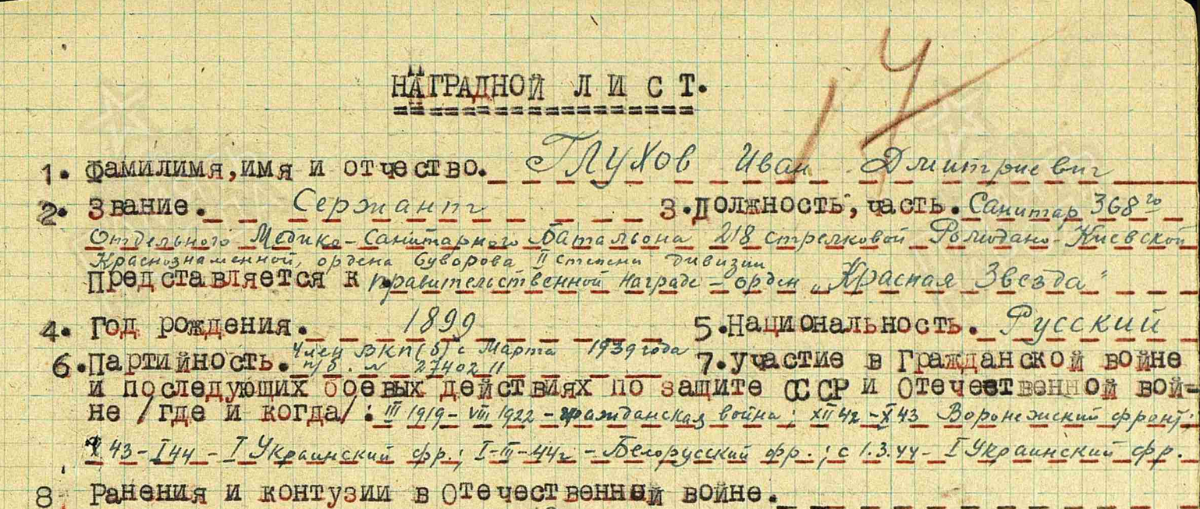 17
НАГРАДНОЙ ЛИСТ.
1. Фамилимя,имя и отчество. Глухов Иван Дмитриевич
2. Звание. Сержант 3.Должность,часть. Санитар 368го
Отдельного Медико-Санитарного батальона 218 стрелковой Ромодано-Киевской
Краснознаменной, ордена Суворова II степени дивизии
Представляется к правительственной награде - орден „Красная Звезда"
4. Год рождения. 1899 5.Национальность. Русский
6.Партийность. Член ВКП(б) с Марта 1939 года 7.участие в Гражданской войне
п/б. № 2740211
и последующих боевых действиях по защите СССР и Отечественной вой-
не /где и когда/: III 1919-VIII 1922 - гражданская война; XII 42-X 43 Воронежский фронт;
X 43-I 44 - I Украинский фр.; I-III-44г - Белорусский фр.; с 1.3.44 - I Украинский фр.
8. Ранения и контузии в Отечественней войне.